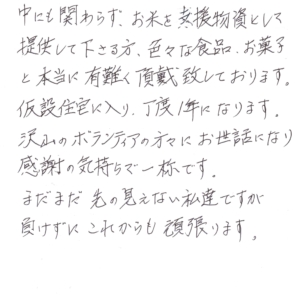 中にも関わらず、お米を支援物資として
提供して下さる方、色々な食品、お菓子
と本当に有難く頂戴致しております。
仮設住宅に入り、丁度1年になります。
沢山のボランティアの方々にお世話になり
感謝の気持ちで一杯です。
まだまだ先の見えない私達ですが
負けずにこれからも頑張ります。